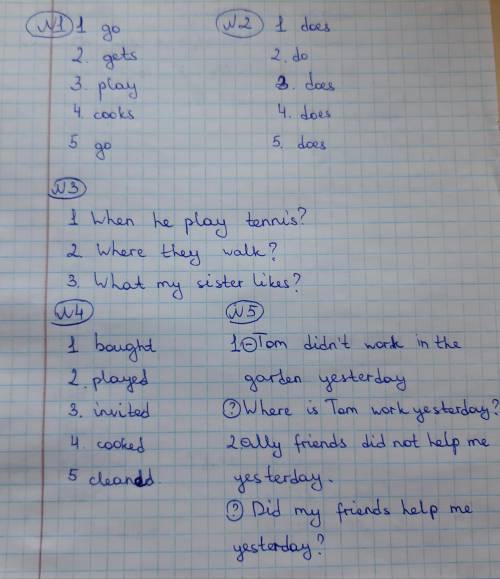 №1 1 go
2. gets
3. play
4. cooks
5 go
№2 1 does
2. do
3. does
4. does
5. does
№3
1 When he play tennis?
2. Where they walk?
3. What my sister likes?
№4
1 bought
2. played
3. invited
4. cooked
5 cleaned
№5
1 ⊖ Tom didn't work in the
garden yesterday
? Where is Tom work yesterday?
2. ⊖ My friends did not help me
yesterday.
? Did my friends help me
yesterday?